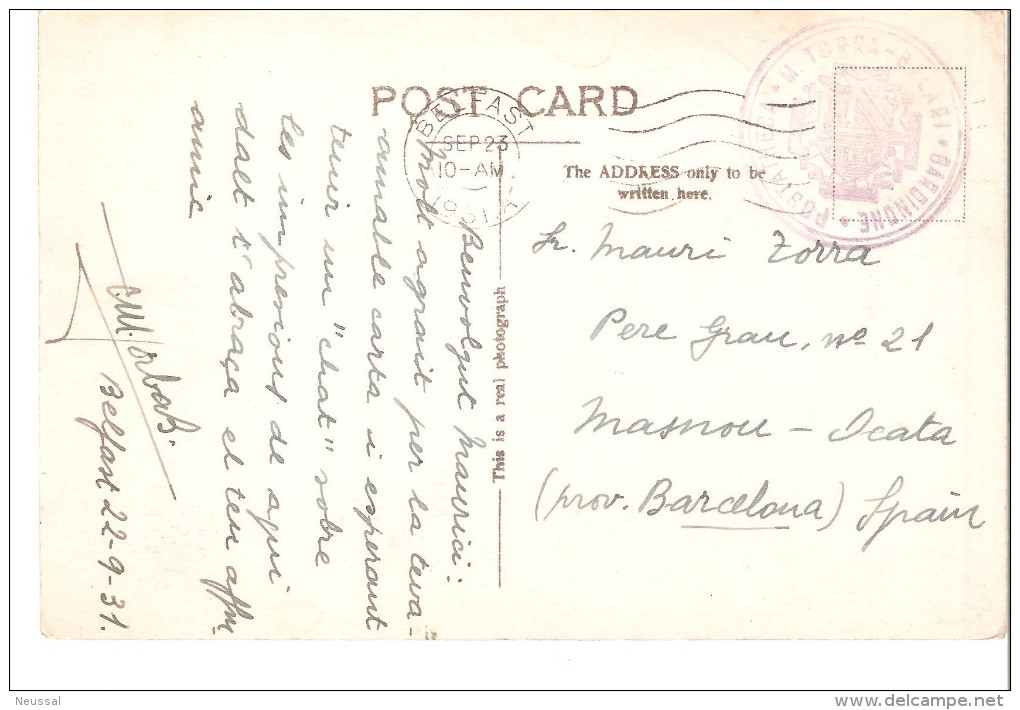 POST CARD
BELFAST
SEP 23
10-AM
1931
M. TORRA-BALARI * BARCINONE * POSTA
The ADDRESS only to be
written here.
This is a real photograph
Benvolgut Maurici:
Molt agrait per la teva
amable carta i esperant
tenir un "chat" sobre
les impresions de aqui
dalt t'abraça el teu affm
amic
Belfast 22-9-31.
Sr. Mauri Torra
Pere Grau, nº 21
Masnou - Ocata
(prov. Barcelona) Spain
Neussal
delcampe.net